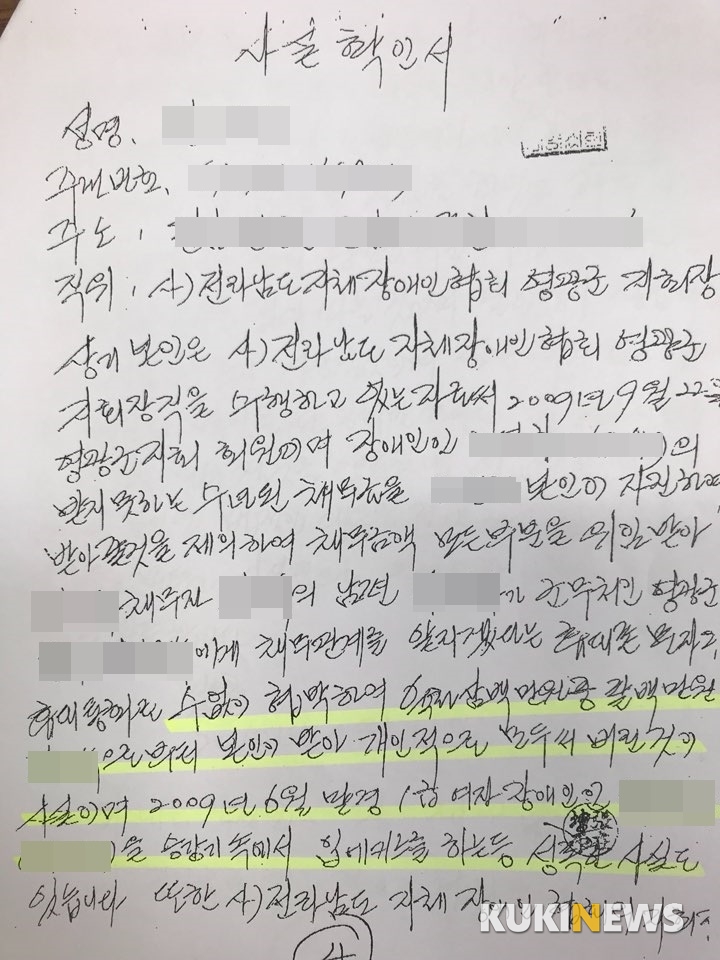 사실확인서
성명.
주민번호.
주소 :
직위 : 사)전라남도지체장애인협회 영광군 지회장
상기 본인은 사)전라남도 지체장애인협회 영광군
지회장직을 수행하고 있는자로써 2009년 9월 22
영광군지회 회원이며 장애인인 의
받지못하는 수년된 채무금을 본인이 자진하여
받아줄것을 제의하여 채무금액 모든부분을 위임받아
채무자 의 남편 근무처인 영광군
에게 채무관계를 알자겠다는
수없이 협박하여 삼백만원중 팔백만원
본인이 받아 개인적으로 모두써 버린것이
사실이며 2009년 6월 말경 1급 여자장애인인
을 승강기 속에서 입에키스를 하는등 성폭행 사실도
있습니다 또한 사)전라남도 지체
4
KUKINEWS